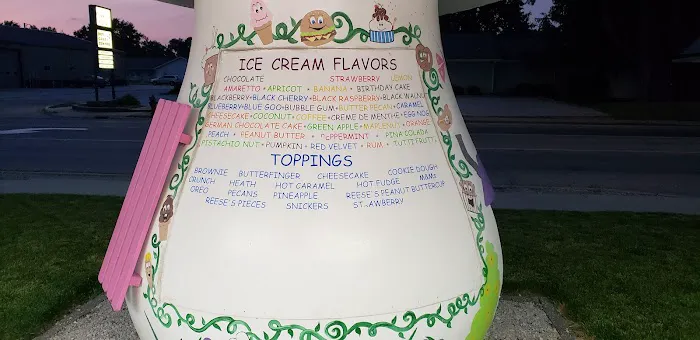 ICE CREAM FLAVORS
CHOCOLATE STRAWBERRY LEMON
AMARETTO • APRICOT • BANANA • BIRTHDAY CAKE
BLACKBERRY • BLACK CHERRY • BLACK RASPBERRY • BLACK WALNUT
BLUEBERRY • BLUE GOO • BUBBLE GUM • BUTTER PECAN • CARAMEL
CHEESECAKE • COCONUT • COFFEE • CREME DE MENTHE • EGG NOG
GERMAN CHOCOLATE CAKE • GREEN APPLE • MAPLE NUT • ORANGE
PEACH • PEANUT BUTTER • PEPPERMINT • PINA COLADA
PISTACHIO NUT • PUMPKIN • RED VELVET • RUM • TUTTI FRUTTI
TOPPINGS
BROWNIE BUTTERFINGER CHEESECAKE COOKIE DOUGH
CRUNCH HEATH HOT CARAMEL HOT FUDGE M&Ms
OREO PECANS PINEAPPLE REESE'S PEANUT BUTTERCUP
REESE'S PIECES SNICKERS STRAWBERRY